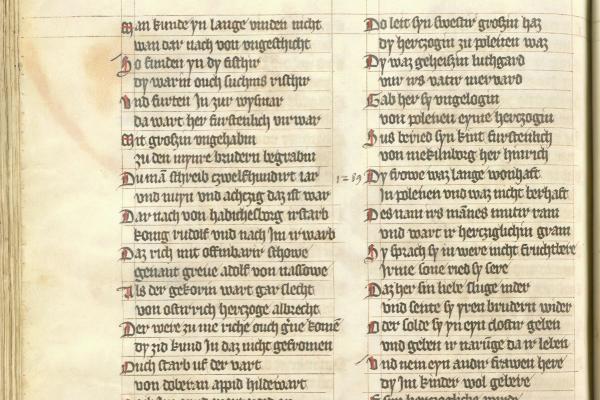 Man kunde yn lange vinden nicht
wan dar nach von ungeschicht
So funden yn dy visschir
dy warin ouch suchins rischir
Und furten In zur wysmar
da wart her furstenlich virwar
Mit groszin ungehabin
zu den mynre brudern begrabin
Du mā schreib czwelfhundirt iar
und nuyn und achczig daz ist war
Dar nach von habichesborg irstarb
konig rudolf und nach Im irwarb
Daz rich mit offinbarir schowe
genant greve adolf von nassowe
Als der gekorin wart gar slecht
von ostirrich herczoge albrecht
Der were zu me riche ouch gne komē
dy zid kund In daz nicht gefromen
Ouch starb uf der vart
von doberan appid hildewart
Do leit syn swestir groszin haz
dy herczogin zu polenen waz
Dy waz geheiszin luthgard
nur irs vatir
Gab her sy ungelogin
von polenen eyme herczogin
Sus beried syn kint furstenlich
von mekilnborg her hinrich
1289
Dy frowe waz lange wonhaft
In polenen und waz nicht berhaft
Des nam irs mānes mutir ram
und wart ir hercziglichin gram
Sy sprach sy in were nicht fruchtbere
Irme sone ried sy sere
Daz her sin liebe sluge nider
und sente sy yren brudern wider
Oder solde sy yn eyn closter geben
und geben ir narunge da ir leben
Und nem eyn andir frawen here
dy Im kinder wol gebere